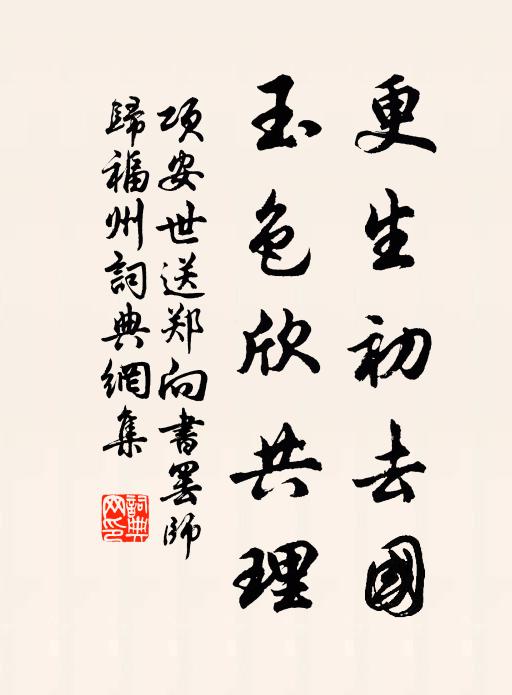 更生初去國
玉色欣共理
项安世送郑向書罢師
歸福州詞典網集
詞典網印